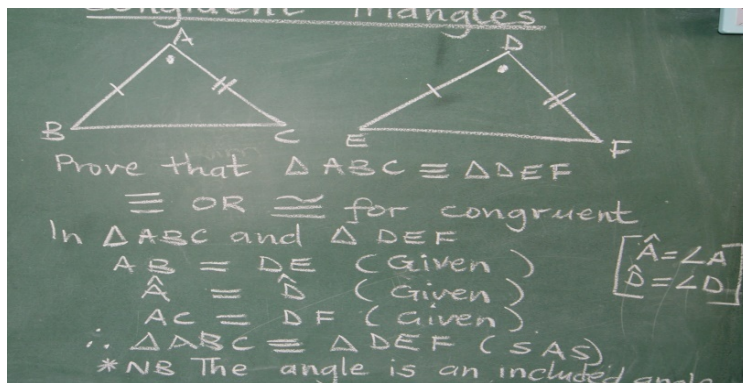 Congruent Triangles
A
D
B
C
E
F
Prove that △ABC ≡ △DEF
≡ OR ≅ for congruent
In △ABC and △DEF
AB = DE (Given)
Â = D̂ (Given)
AC = DF (Given)
∴ △ABC ≡ △DEF (SAS)
[Â = ∠A
D̂ = ∠D]
*NB The angle is an included angle